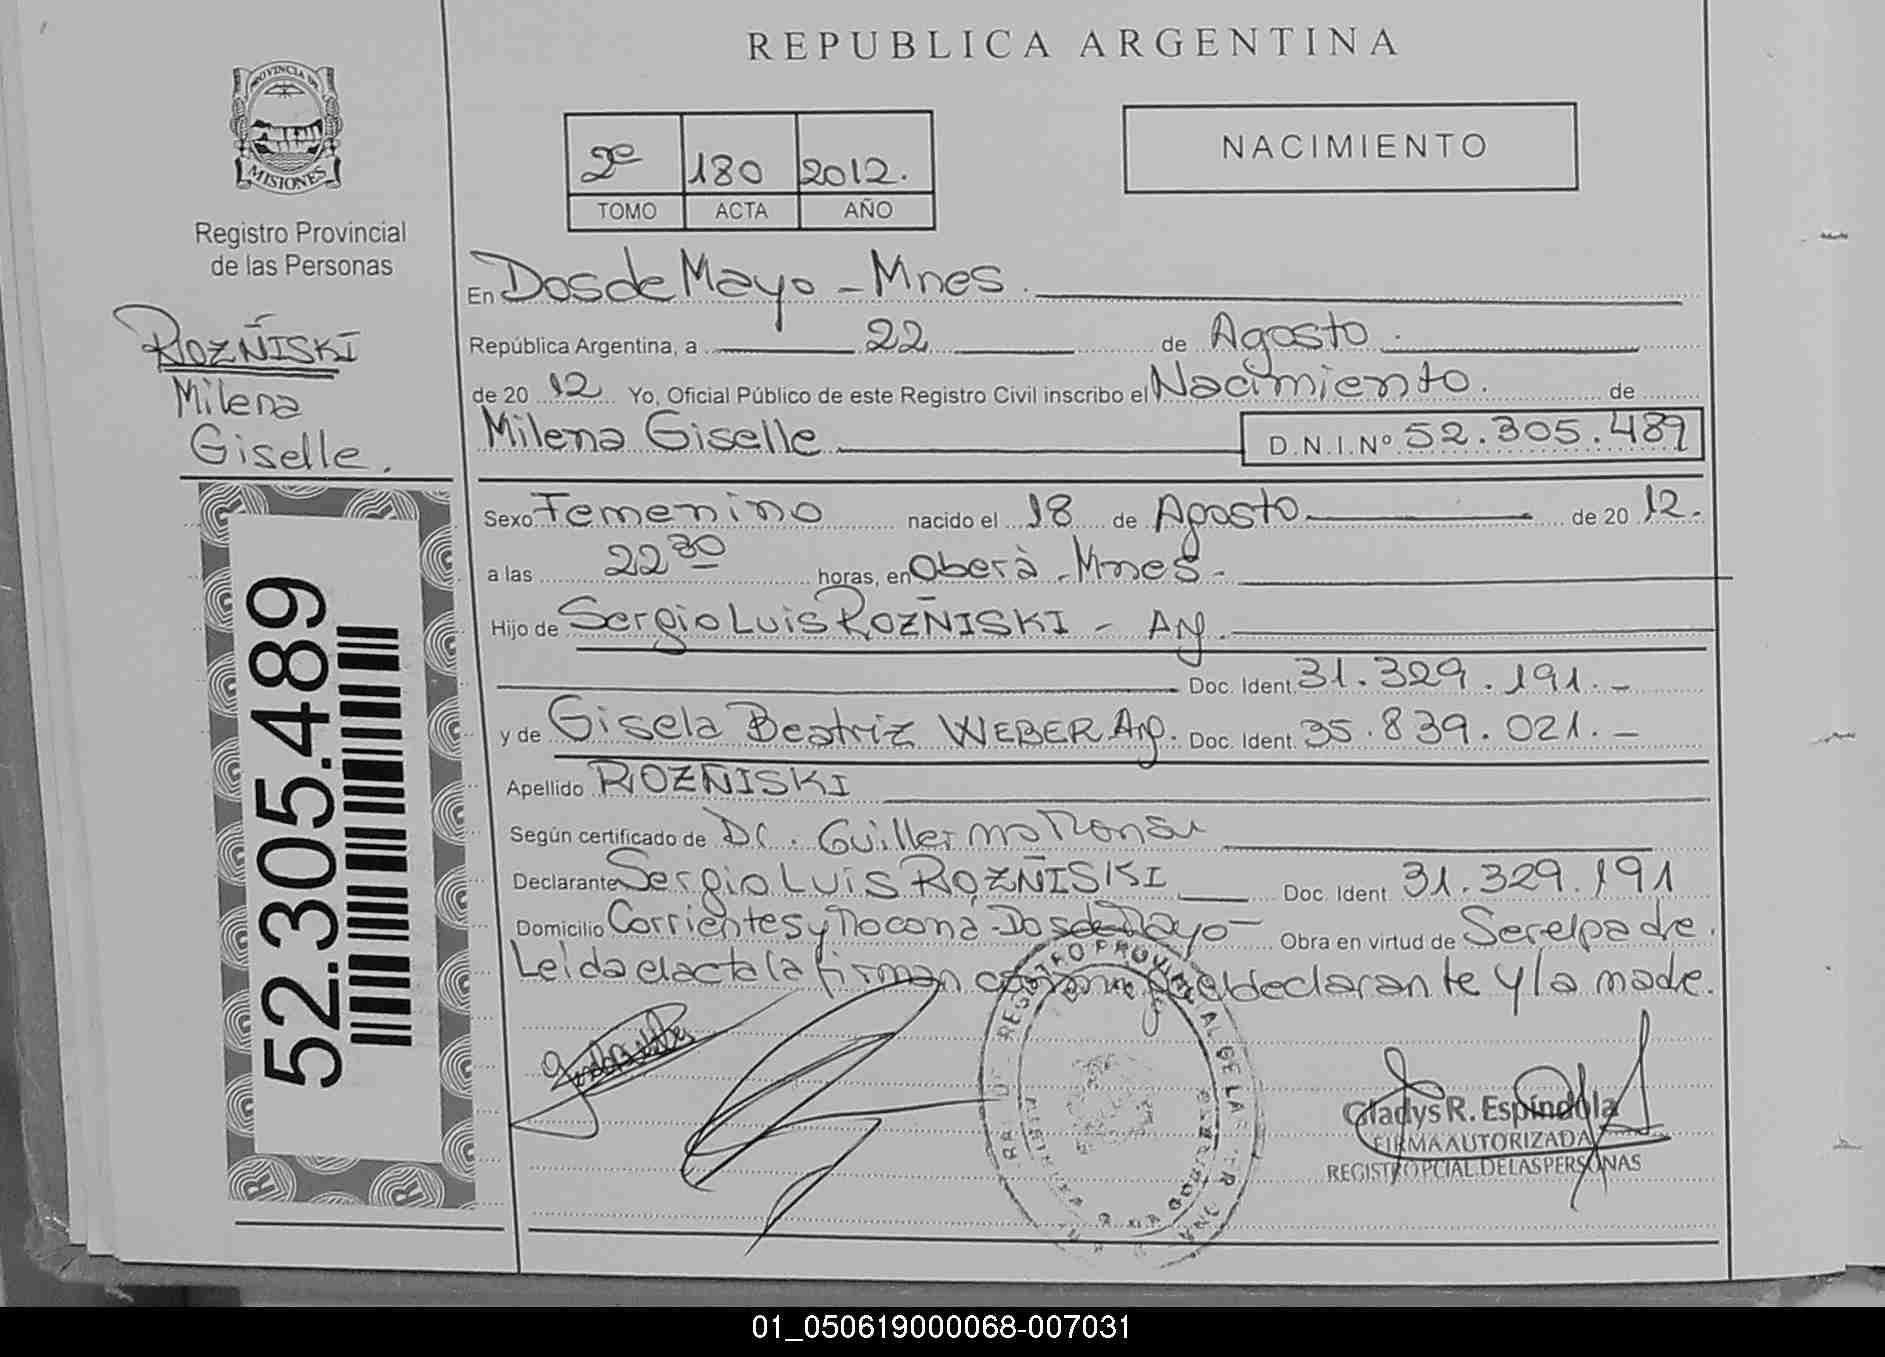 REPUBLICA ARGENTINA
PROVINCIA DE
MISIONES
Registro Provincial
de las Personas
ROZÑISKI
Milena
Giselle.
52.305.489
2º 180 2012.
TOMO ACTA AÑO
NACIMIENTO
En Dos de Mayo - Mnes.
República Argentina, a 22 de Agosto.
de 20 12 Yo, Oficial Público de este Registro Civil inscribo el Nacimiento. de
Milena Giselle D.N.I.Nº 52.305.489
Sexo Femenino nacido el 18 de Agosto de 20 12.
a las 22 30 horas, en Oberà - Mnes -
Hijo de Sergio Luis ROZÑISKI - Arg.
Doc. Ident. 31.329.191.-
y de Gisela Beatriz WEBER Arg. Doc. Ident. 35.839.021.-
Apellido ROZÑISKI
Según certificado de Dr. Guillermo
Declarante Sergio Luis ROZÑISKI Doc. Ident. 31.329.191
Domicilio Corrientes y Mocona - Dos de Mayo - Obra en virtud de Ser el padre.
Leida el acta la firman conmigo el declarante y la madre.
REGISTRO PROVINCIAL DE LAS
Gladys R. Espíndola
FIRMA AUTORIZADA
REGISTRO PCIAL. DE LAS PERSONAS
01_050619000068-007031